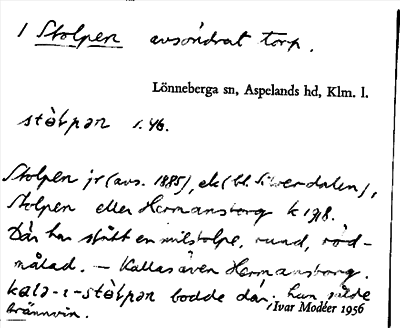 1 Stolpen avsöndrat torp.
Lönneberga sn, Aspelands hd, Klm. l.
stòlpən s. 46.
Stolpen jr (avs. 1885), ek (bl. Silverdalen),
Stolpen eller Hermansborg k 1918.
Där har stått en milstolpe, rund, röd-
målad. – Kallas även Hermansborg.
kalə-i-stòlpən bodde där, han sålde
brännvin.
Ivar Modéer 1956